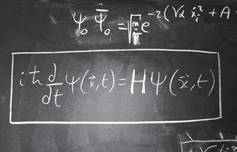 ψ₀ ψ̄₀ = √ e^-2(√α ẋᵢ² + A
iℏ d/dt ψ(x⃗,t) = Hψ(x⃗,t)